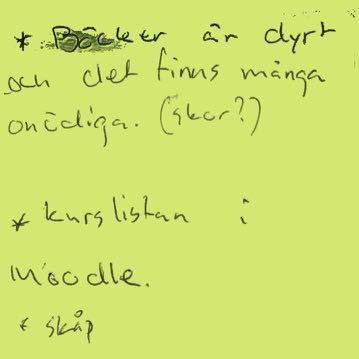 * Böcker är dyrt
och det finns många
onödiga. (skor?)
* kurslistan i
Moodle.
* skåp